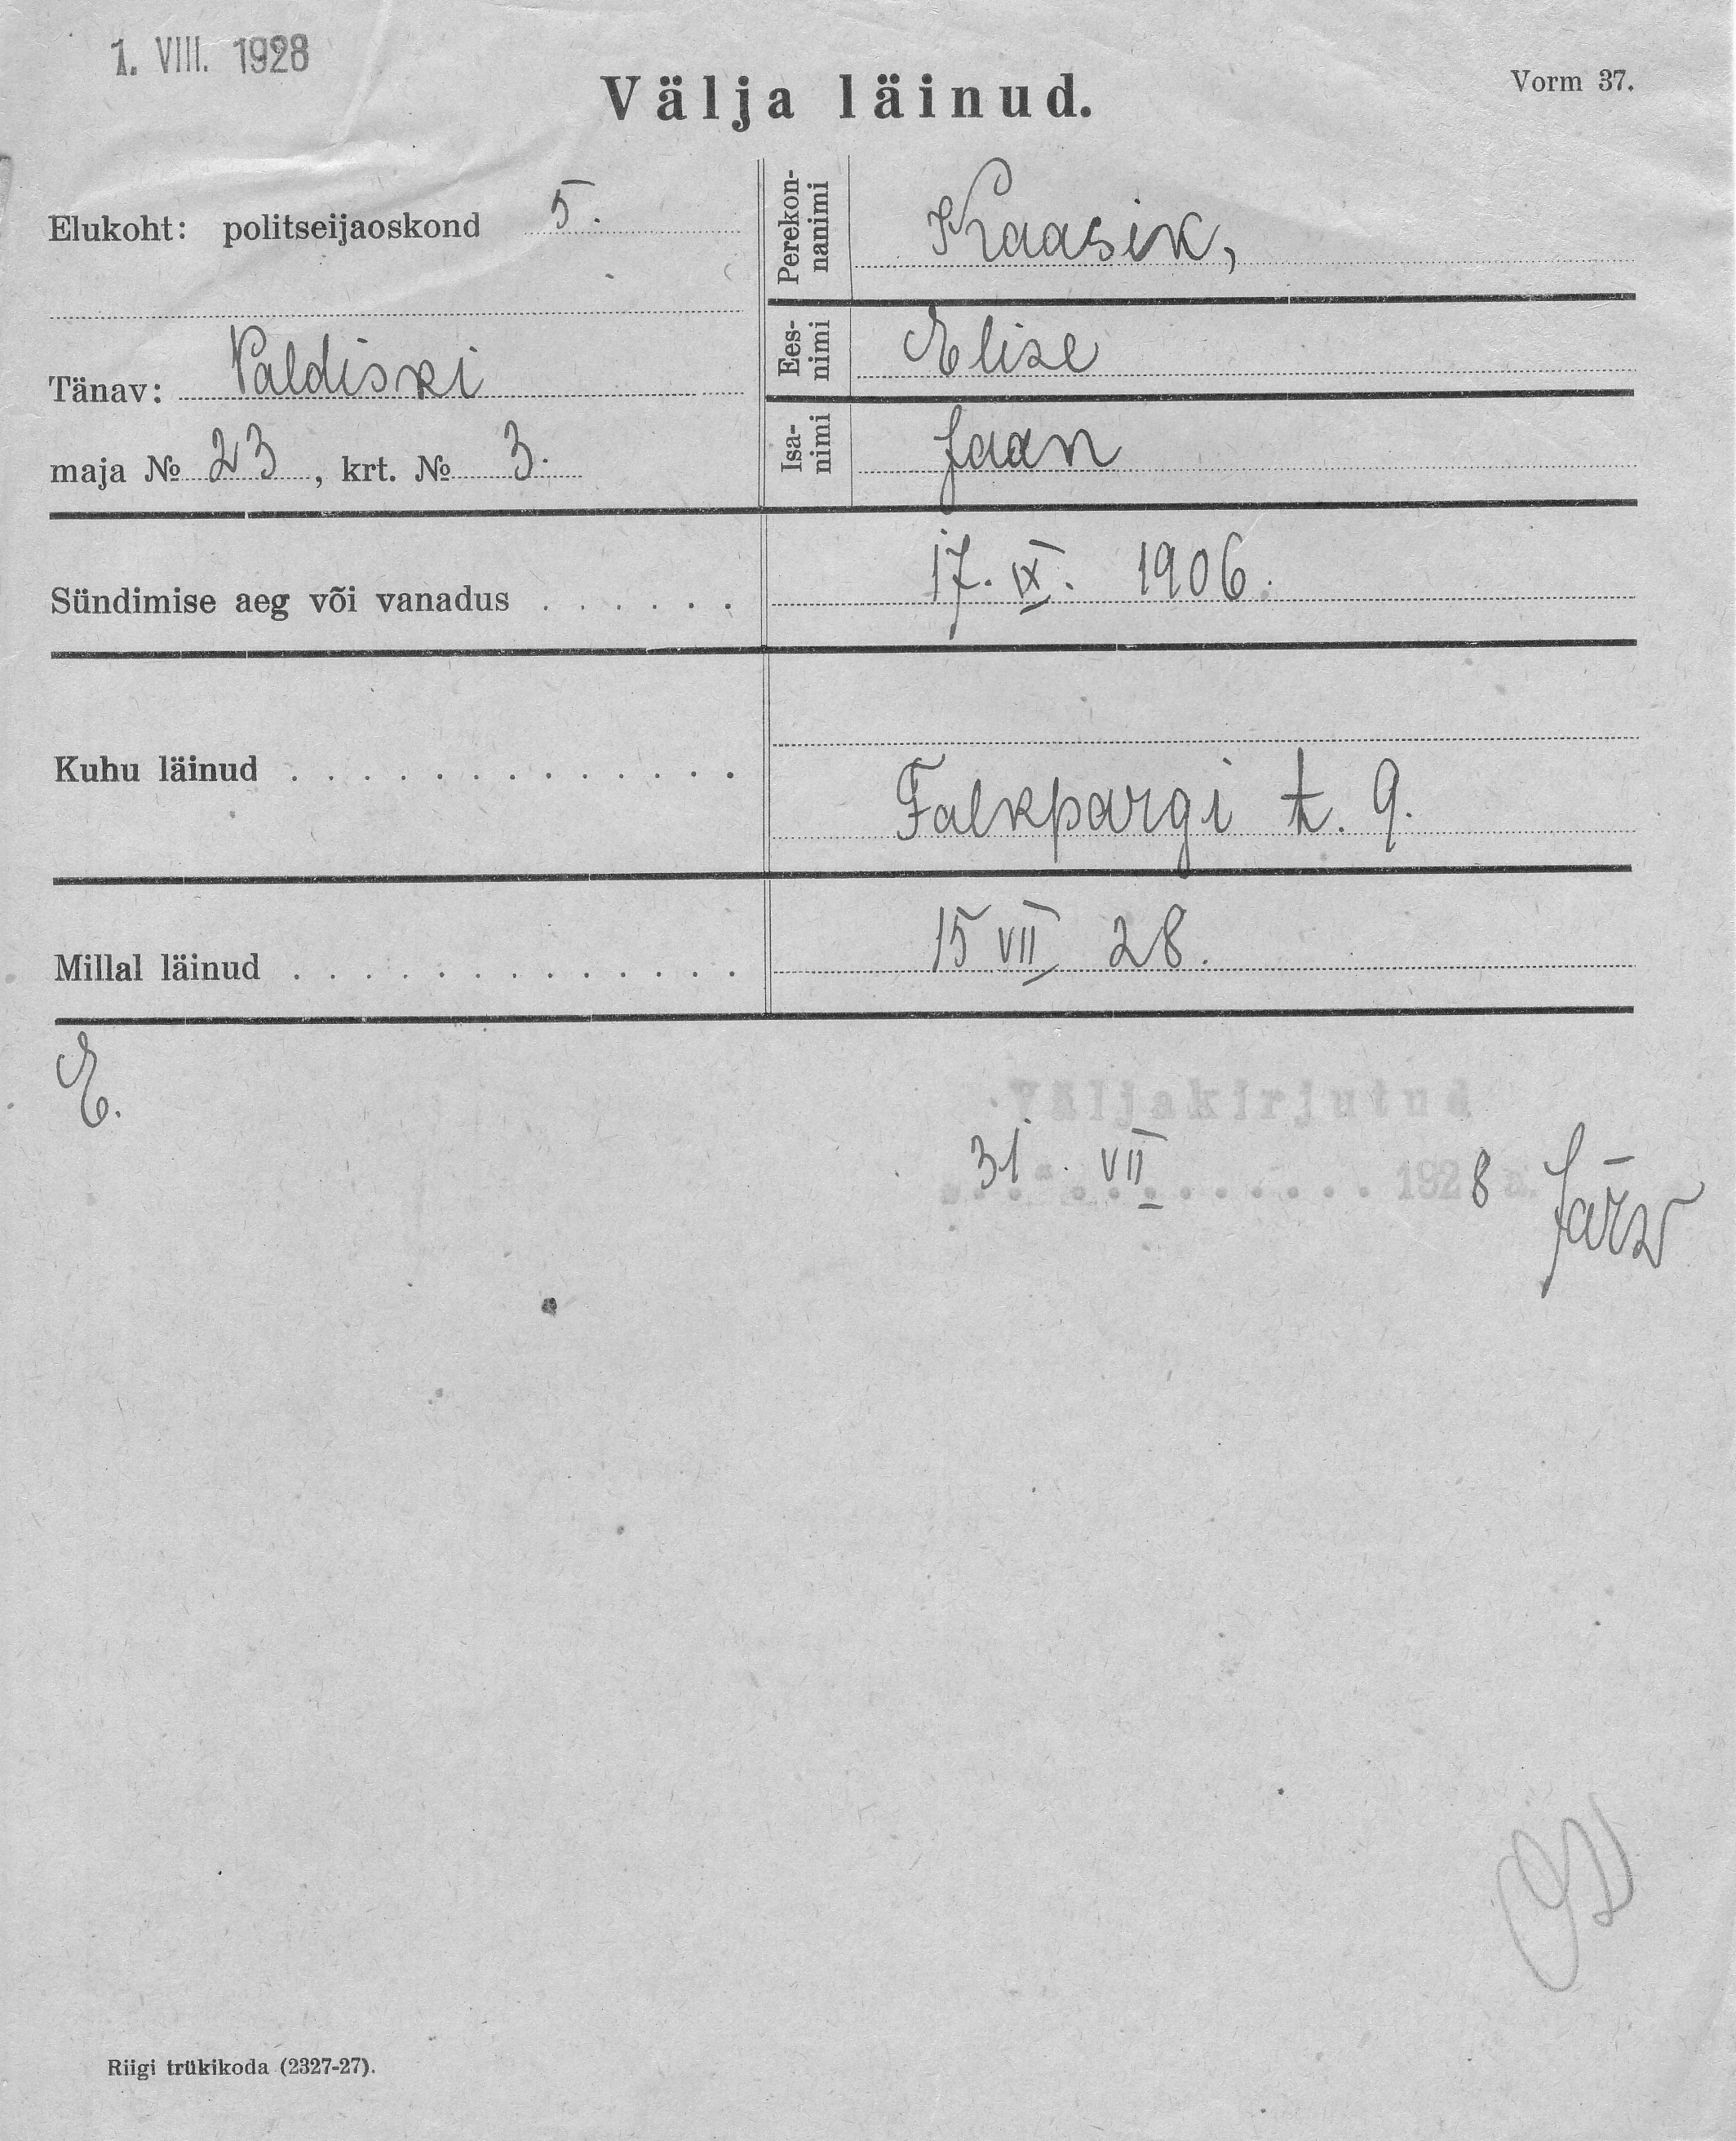 1. VIII. 1928
Vorm 37.
Välja läinud.
Elukoht: politseijaoskond 5.
Tänav: Paldiski
maja № 23, krt. № 3.
Perekon-
nanimi
Kaasik,
Ees-
nimi
Elise
Isa-
nimi
Jaan
Sündimise aeg või vanadus . . . . . . 17. IX. 1906.
Kuhu läinud . . . . . . . . . . . . . Falkpargi t. 9.
Millal läinud . . . . . . . . . . . . . 15 VII 28.
E.
Väljakirjutud
31. VII 1928 a.
Riigi trükikoda (2327-27).